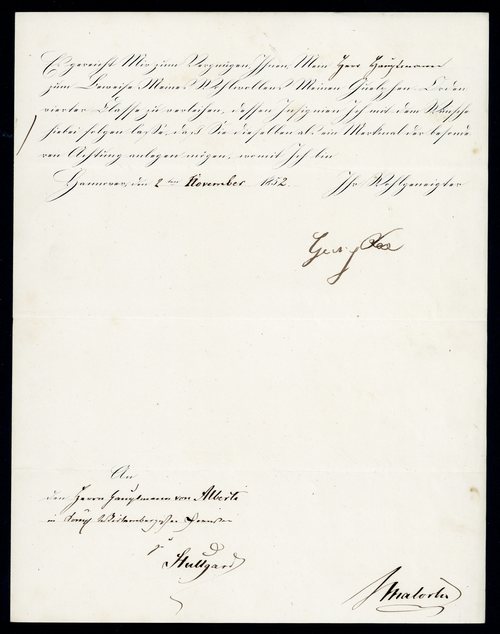 Es gereicht Mir zum Vergnügen, Ihnen, Mein Herr Hauptmann
zum Beweise Meines Wohlwollens Meinen Guelphen-Orden
vierter Classe zu verleihen, dessen Insignien Ich mit dem Wunsche
hiebei folgen lasse, daß Sie dieselben als ein Merkmal der besonde-
ren Achtung anlegen mögen, womit Ich bin
Hannover, den 2ten November 1852. Ihr Wohlgeneigter
Georg Rex
An
den Herrn Hauptmann von Alberti
in Königl. Württembergischen Diensten
zu
Stuttgard
Malortie